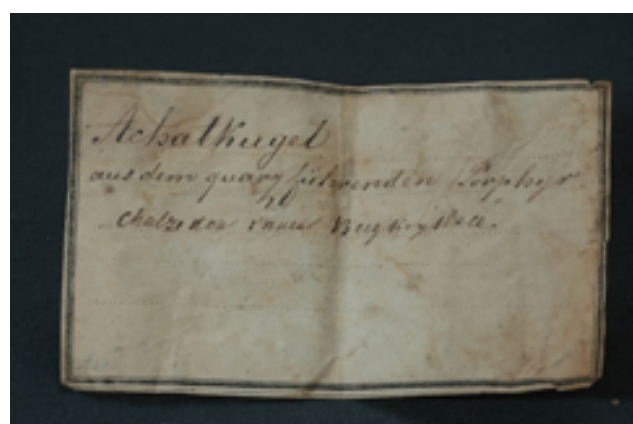 Achatkugel
aus dem quarzführenden Porphyr.
Chalzedon innen Bergkrystall.